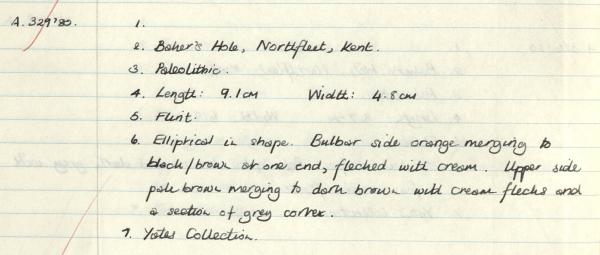 A.329'80. 1.
2. Baker's Hole, Northfleet, Kent.
3. Paleolithic.
4. Length: 9.1cm Width: 4.8cm
5. Flint.
6. Elliptical in shape. Bulbar side orange merging to
black/brown at one end, flecked with cream. Upper side
pale brown merging to dark brown with cream flecks and
a section of grey cortex.
7. Yates Collection.